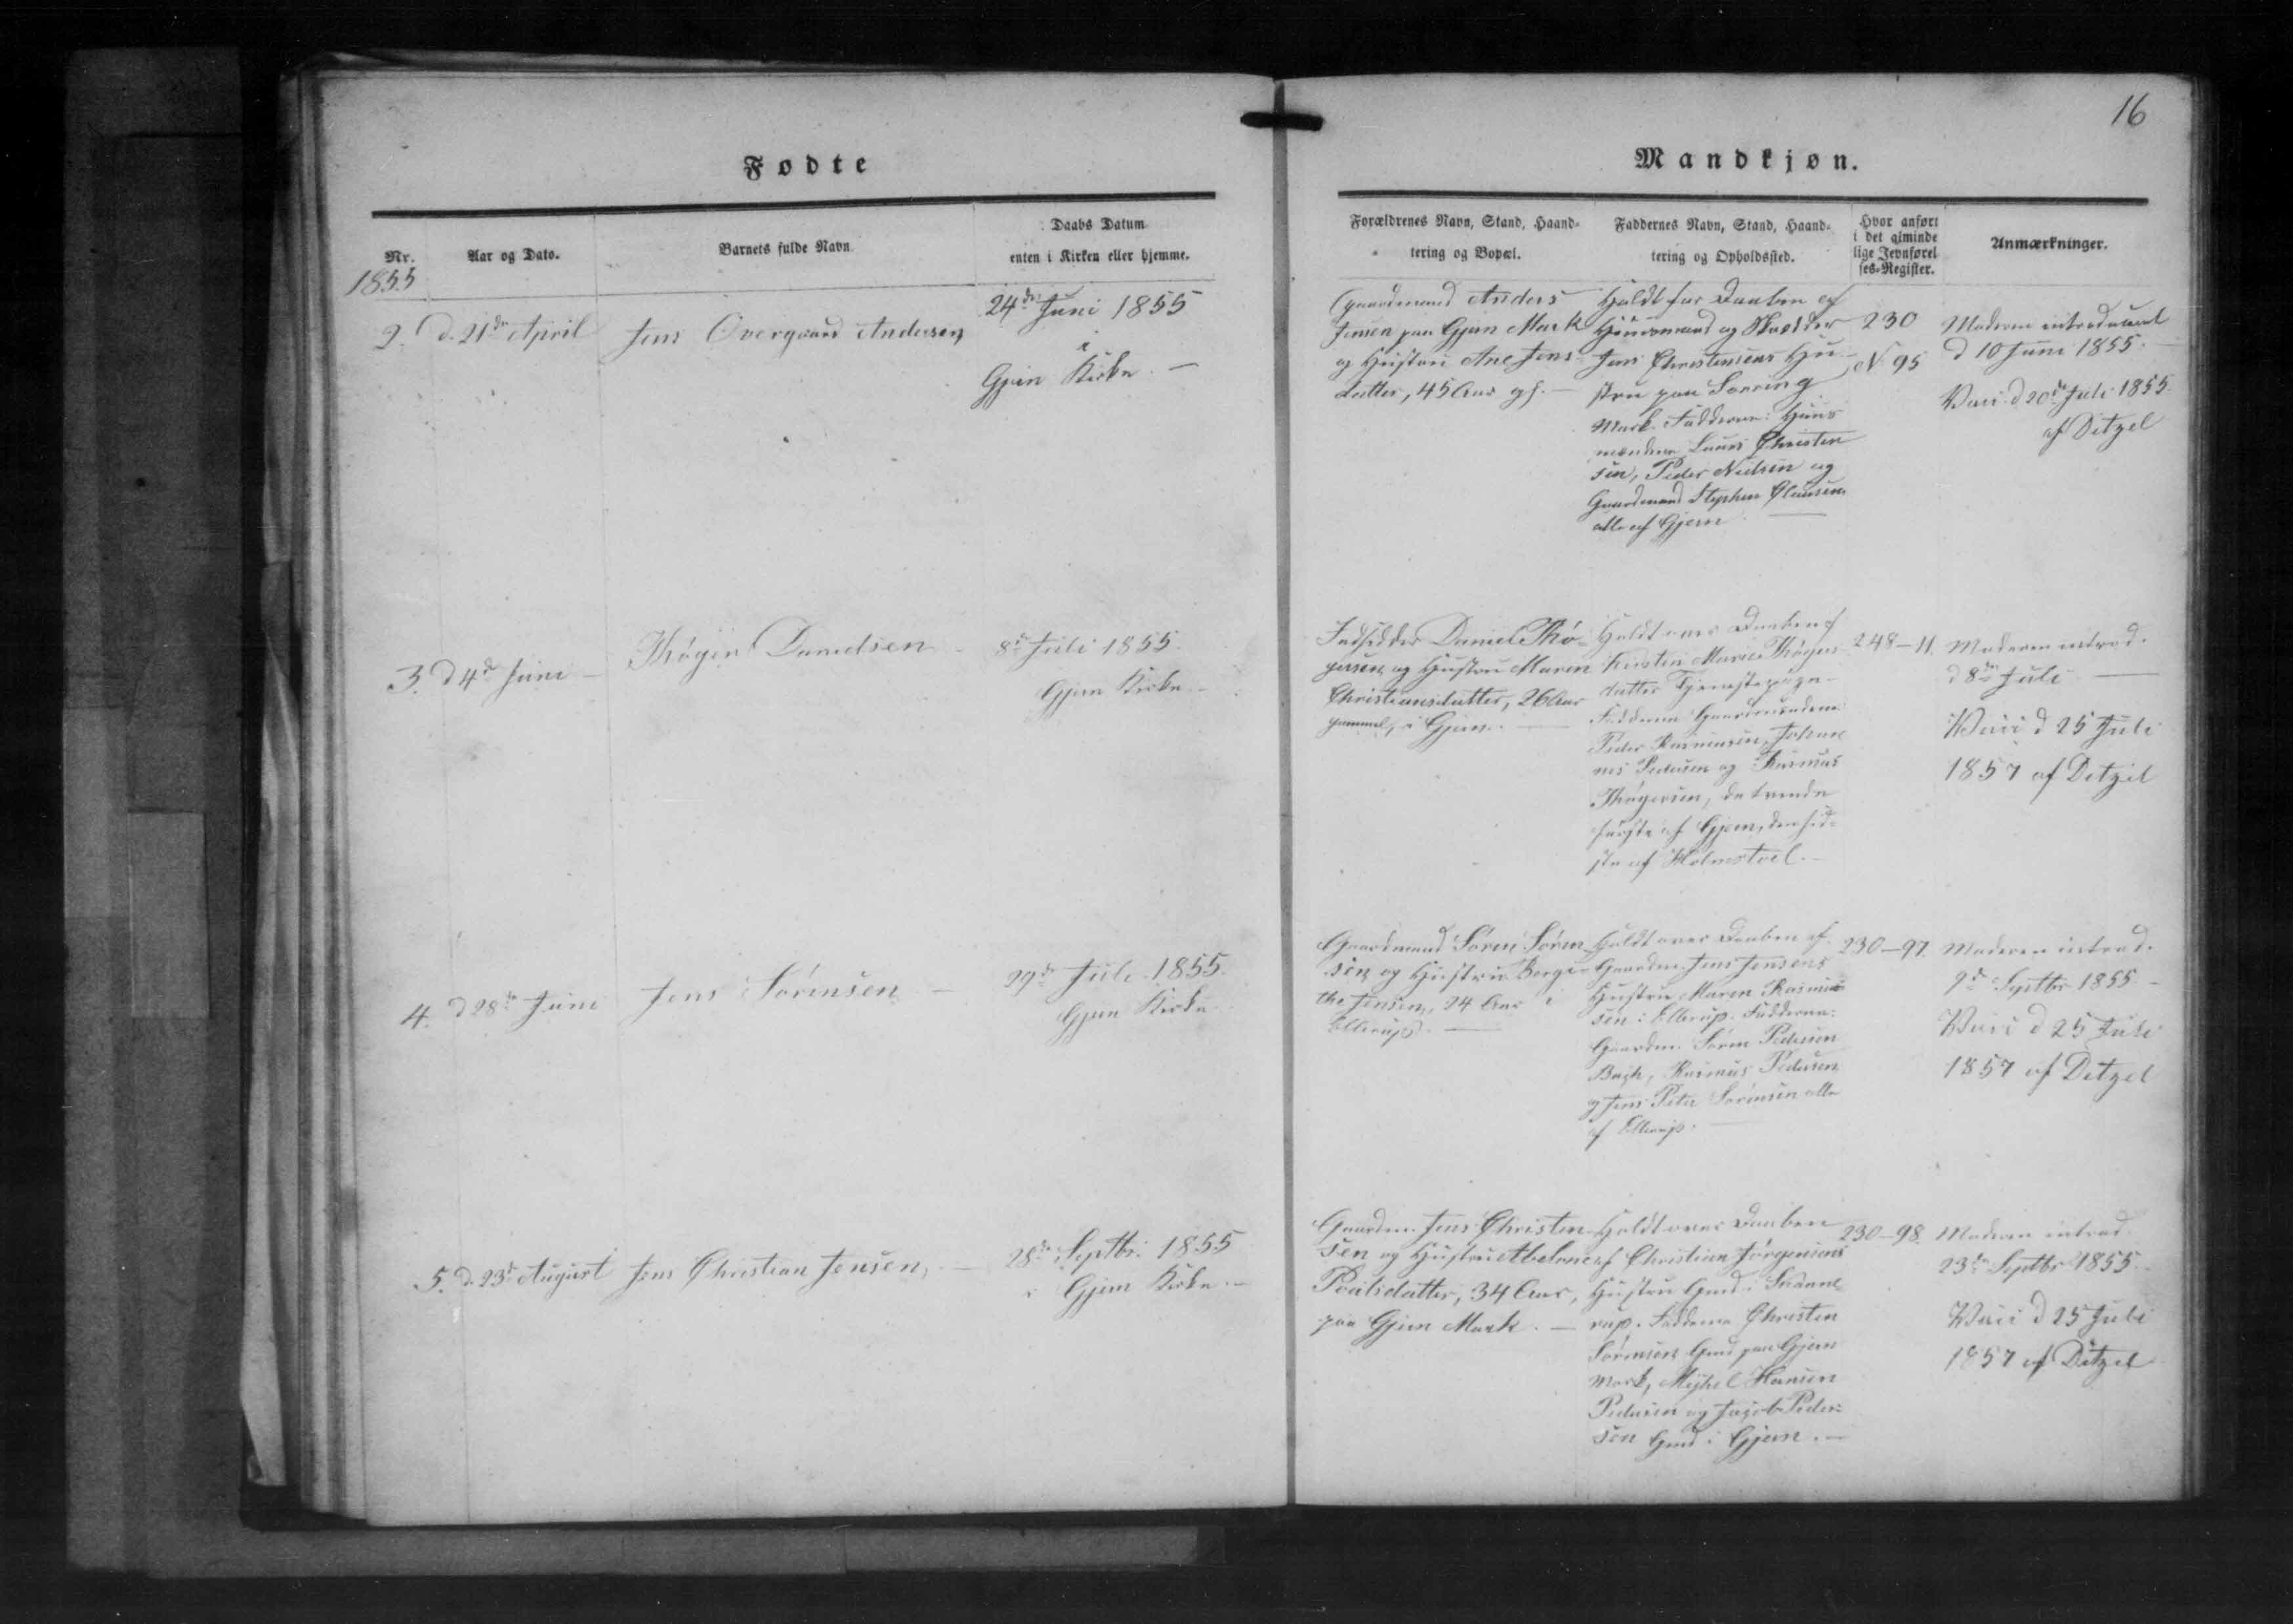 16
Fødte
Mandkjøn.
Nr.
Aar og Dato.
Barnets fulde Navn
Daabs Datum
enten i Kirken eller hjemme.
Forældrenes Navn, Stand, Haand-
tering og Bopæl.
Faddernes Navn, Stand, Haand-
tering og Opholdssted.
Hvor anført
i det alminde
lige Jevnførel
ses-Register.
Anmærkninger.
1855
2. d. 21de April
Jens Overgaard Andersen
24de Juni 1855
i
Gjern Kirke. —
Gaardmand Anders
Jensen paa Gjern Mark
og Hustru Ane Jens
datter, 45 Aar gl. —
Holdt over Daaben af
Huusmand og Skrædder
Jens Christensens Hu-
stru paa Sorring
Mark. Fadderne: Huus
mændene Laurs Christen
sen, Peder Nielsen og
Gaardmand Stephen Clausen
alle af Gjern. —
230
N 95
Moderen introduceret
d 10 Juni 1855. —
Vacc. d 20de Juli 1855
af Ditzel
3. d 4de Juni —
Thøger Danielsen —
8de Juli 1855.
Gjern Kirke —
Indsidder Daniel Thø-
gersen og Hustru Maren
Christiansdatter, 26 Aar
gammel, i Gjern. —
Holdt over Daaben af
Kirsten Marie Thøger
datter Tjenestepige —
Fadderne Gaardmændene
Peder Rasmussen, Johan
nes Pedersen og Rasmus
Thøgersen, de tvende
første af Gjern, den sid-
ste af Holmstoel. —
248—11.
Moderen introd.
d 8de Juli —
Vacc d 25 Juli
1857 af Ditzel
4. d 28de Juni
Jens Sørensen —
29de Juli 1855.
Gjern Kirke
Gaardmand Søren Søren
sen og Hustru Birgit
the Jensen, 24 Aar i
Ellerup. —
Holdt over Daaben af
Gaardm. Jens Jensens
Hustru Maren Rasmus
sen i Ellerup. Fadderne:
Gaardm. Søren Pedersen
Rasmus Pedersen
og Jens Peter Sørensen alle
af Ellerup. —
230—97.
Moderen introd.
2de Septbr 1855 —
Vacc d 25 Juli
1857 af Ditzel
5. d. 23de August
Jens Christian Jensen, —
28de Septbr: 1855
i Gjern Kirke —
Gaardm. Jens Christen
sen og Hustru Abelone
Poulsdatter, 34 Aar,
paa Gjern Mark. —
Holdt over Daaben
af Christian Jørgensens
Hustru Gmd i Skanne
rup. Fadderne Christen
Sørensen Gmd paa Gjern
Mark, Mikkel Hansen
Pedersen og Jacob Peder-
sen Gmd i Gjern. —
230—98
Moderen introd.
23de Septbr 1855 —
Vacc d 25 Juli
1857 af Ditzel